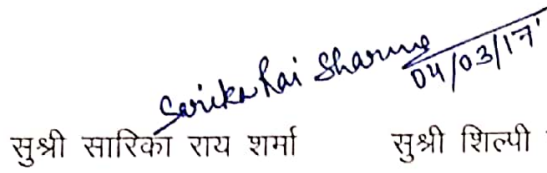 Sarika Rai Sharma
04/03/17
सुश्री सारिका राय शर्मा सुश्री शिल्पी